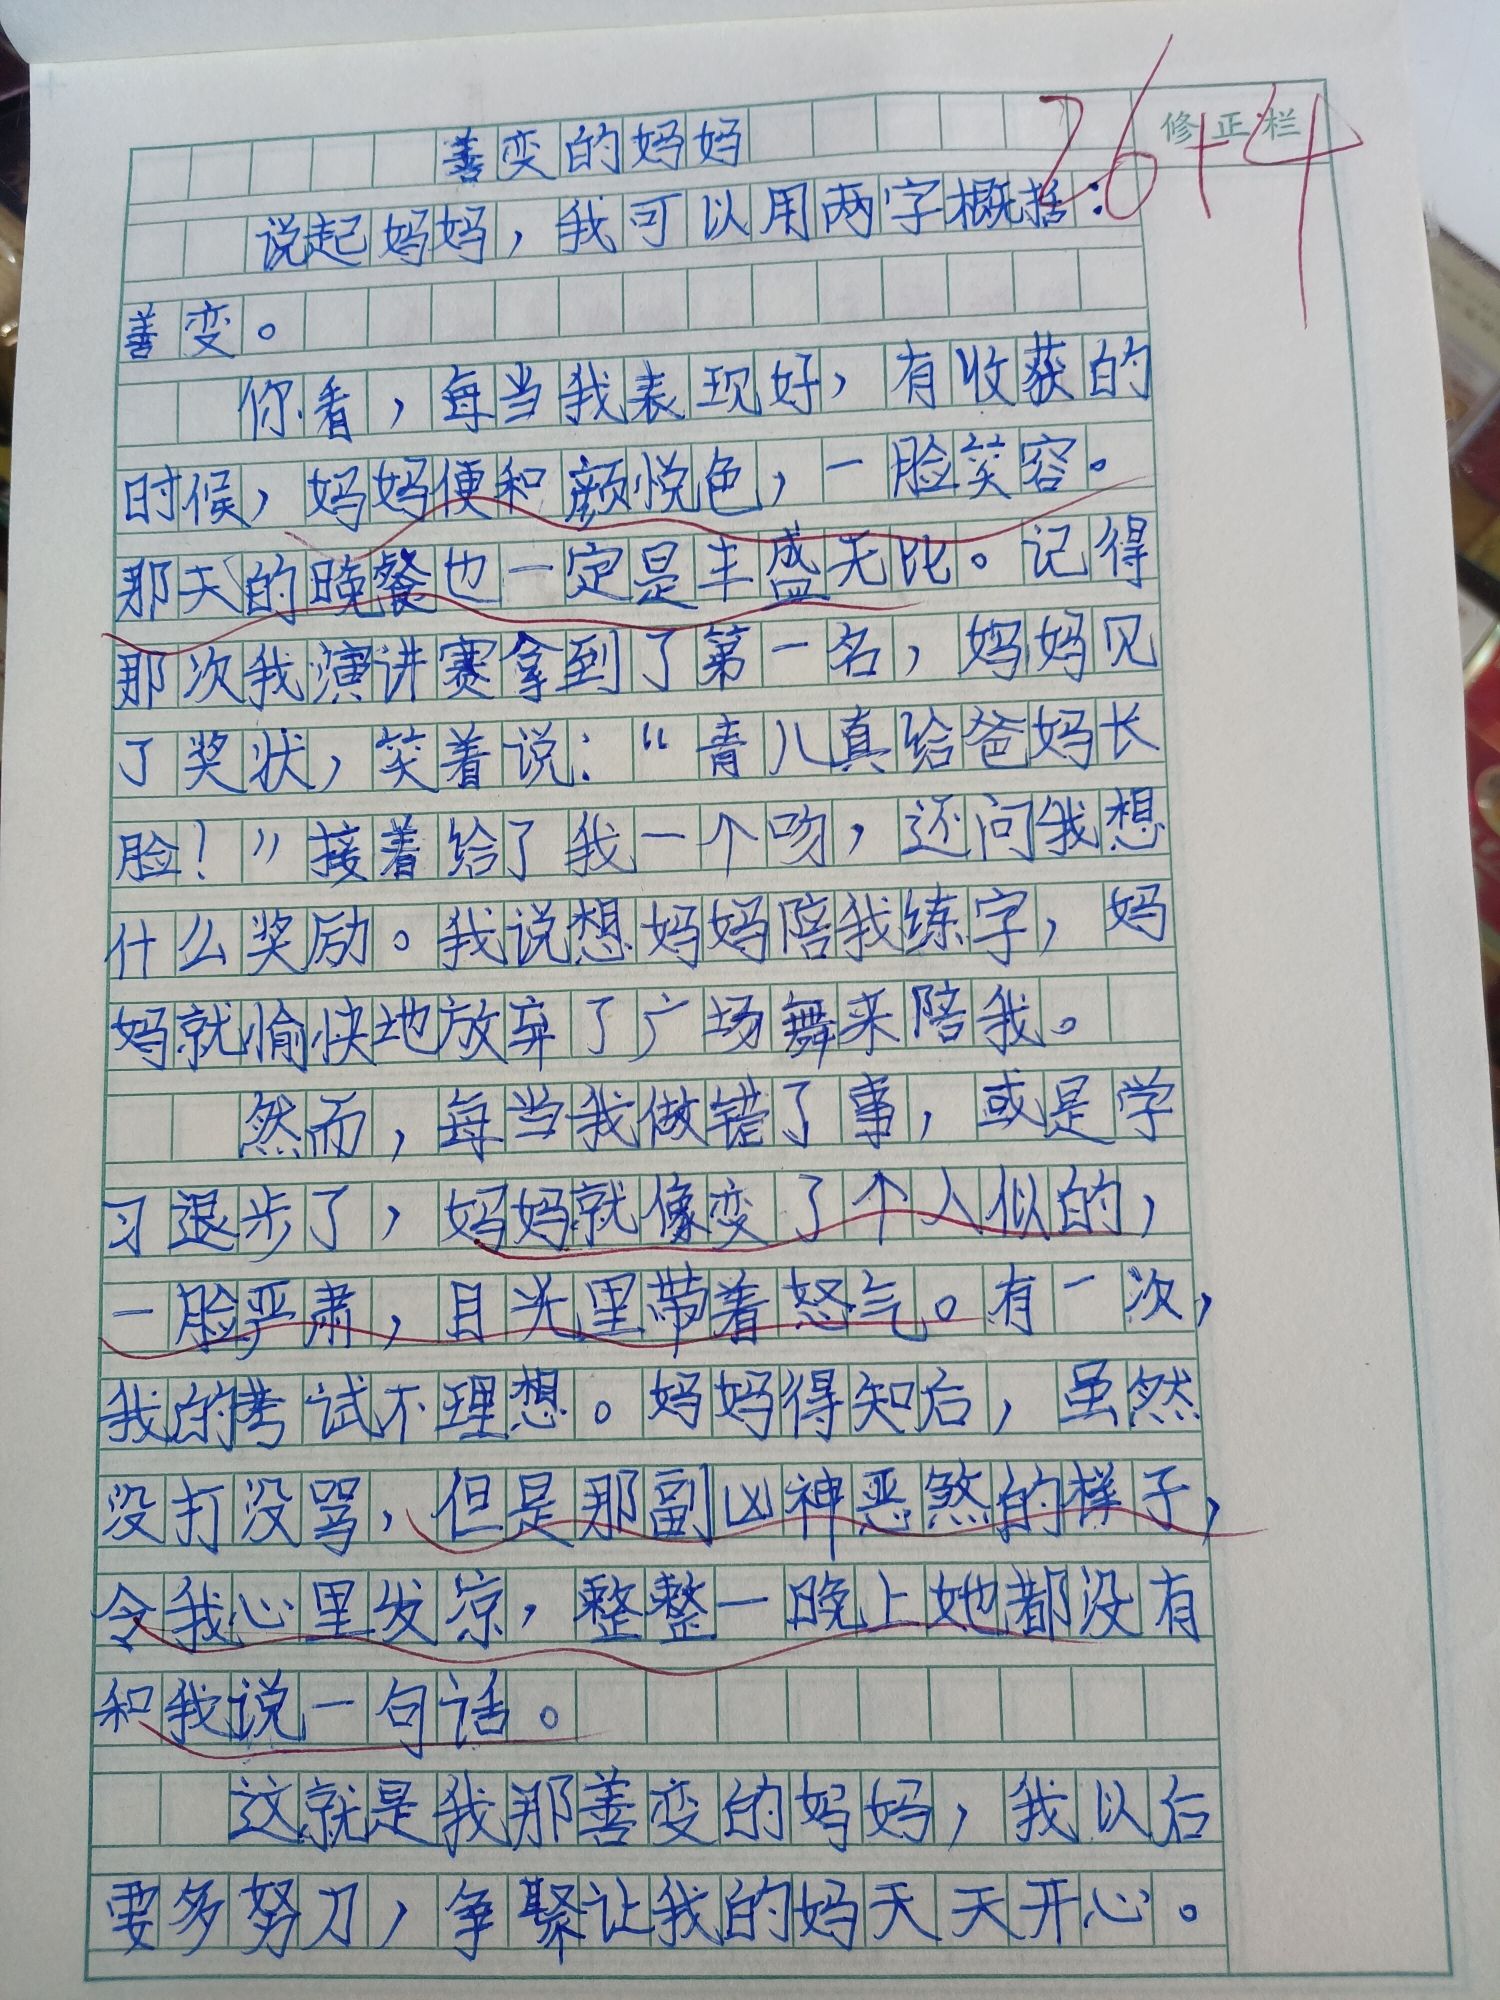 修正栏
26+4
善变的妈妈
说起妈妈，我可以用两字概括：
善变。
你看，每当我表现好，有收获的
时候，妈妈便和颜悦色，一脸笑容。
那天的晚餐也一定是丰盛无比。记得
那次我演讲赛拿到了第一名，妈妈见
了奖状，笑着说：“青儿真给爸妈长
脸！”接着给了我一个吻，还问我想
什么奖励。我说想妈妈陪我练字，妈
妈就愉快地放弃了广场舞来陪我。
然而，每当我做错了事，或是学
习退步了，妈妈就像变了个人似的，
一脸严肃，目光里带着怒气。有一次，
我的考试不理想。妈妈得知后，虽然
没打没骂，但是那副凶神恶煞的样子，
令我心里发凉，整整一晚上她都没有
和我说一句话。
这就是我那善变的妈妈，我以后
要多努力，争聚让我的妈天天开心。